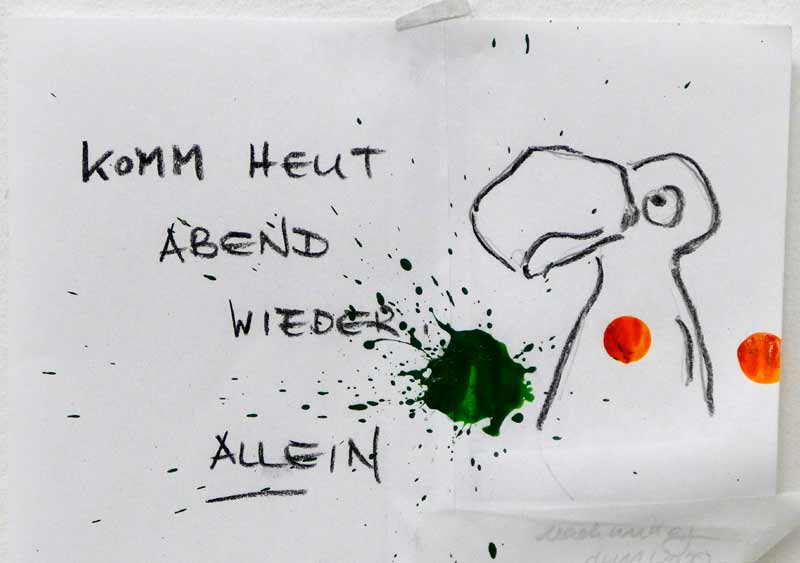 KOMM HEUT
ABEND
WIEDER,
ALLEIN